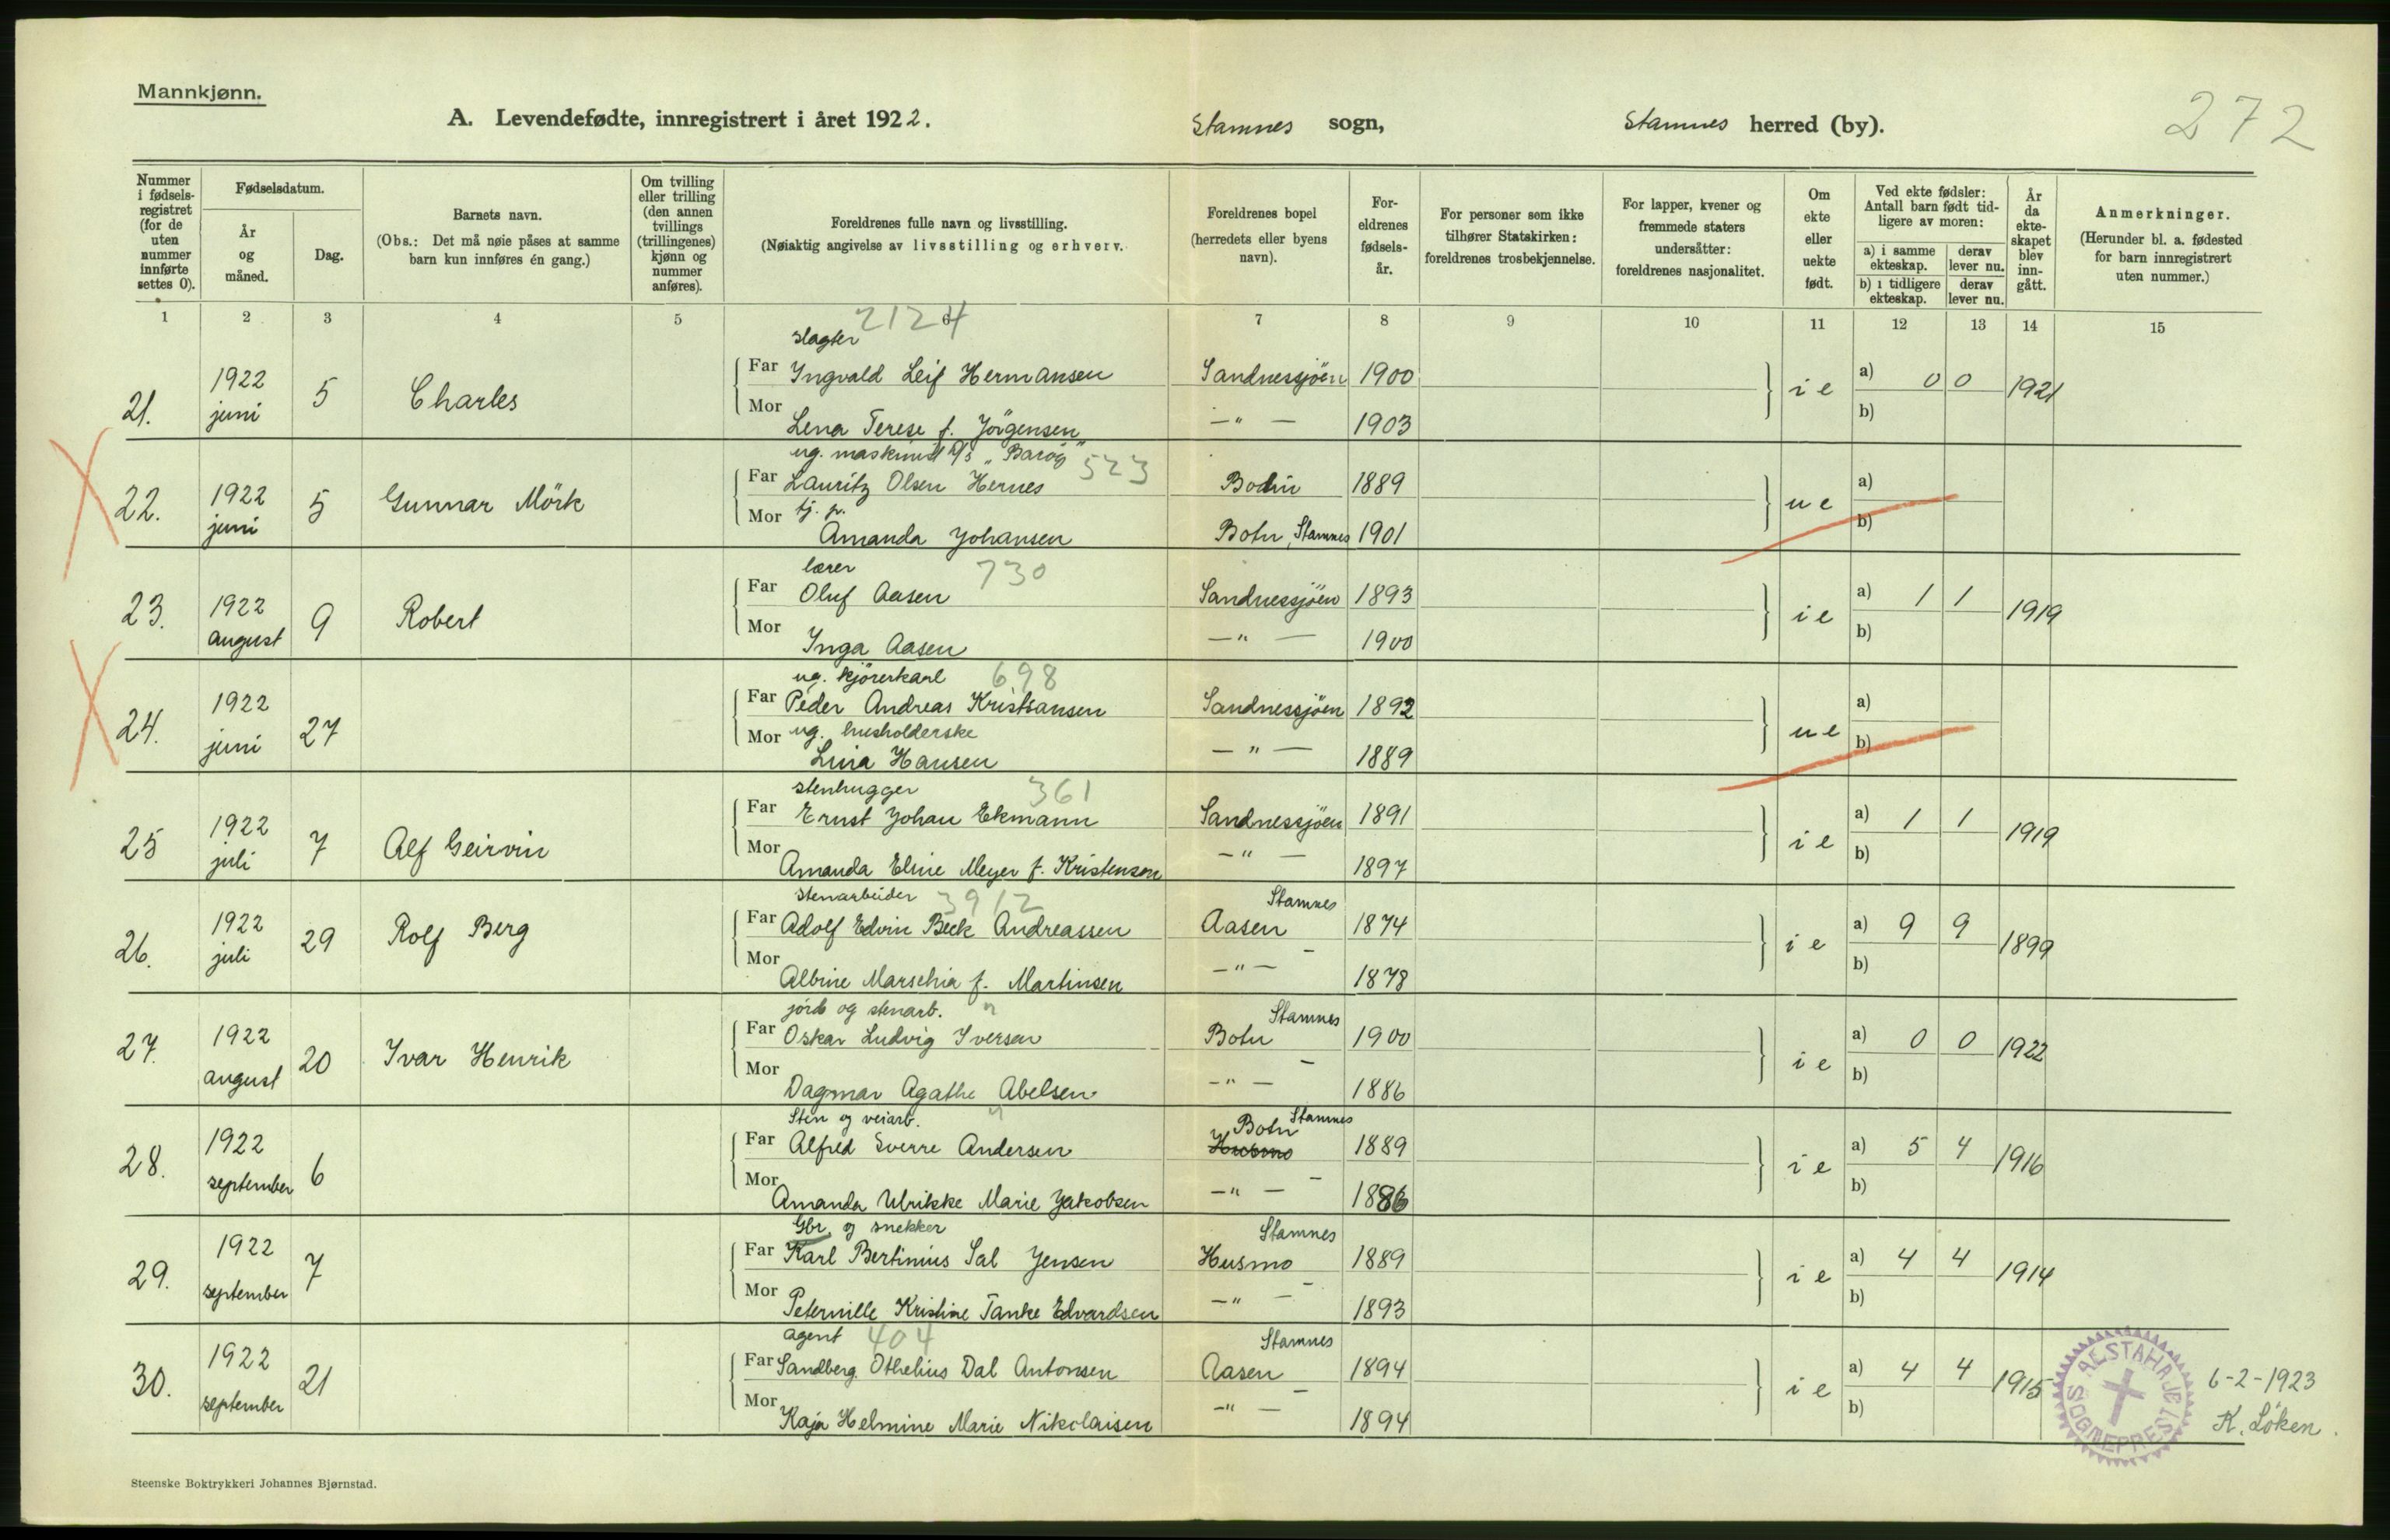 Mannkjønn.
A. Levendefødte, innregistrert i året 1922.
Stamnes sogn,
Stamnes herred (by).
272
Nummer i fødsels-registret (for de uten nummer innførte settes 0).
Fødselsdatum.
År og måned.
Dag.
Barnets navn.
(Obs.: Det må nøie påses at samme barn kun innføres én gang.)
Om tvilling eller trilling (den annen tvillings (trillingenes) kjønn og nummer anføres).
Foreldrenes fulle navn og livsstilling.
(Nøiaktig angivelse av livsstilling og erhverv.
Foreldrenes bopel (herredets eller byens navn).
For-eldrenes fødsels-år.
For personer som ikke tilhører Statskirken: foreldrenes trosbekjennelse.
For lapper, kvener og fremmede staters undersåtter: foreldrenes nasjonalitet.
Om ekte eller uekte født.
Ved ekte fødsler: Antall barn født tid-ligere av moren:
a) i samme ekteskap.
derav lever nu.
b) i tidligere ekteskap.
derav lever nu.
År da ekte-skapet blev inn-gått.
Anmerkninger.
(Herunder bl. a. fødested for barn innregistrert uten nummer.)
1 2 3 4 5 6 7 8 9 10 11 12 13 14 15
slagter 2124
21. 1922 juni 5 Charles
Far Ingvald Leif Hermansen Sandnessjöen 1900 i e a) 0 0 1921
Mor Lena Terese f. Jörgensen —"— 1903 b)
ug. maskinist D/S „Baröy" 523
22. 1922 juni 5 Gunnar Mörk
Far Lauritz Olsen Hernes Bodin 1889 u e a)
Mor tj. p. Amanda Johansen Botn, Stamnes 1901 b)
lærer 730
23. 1922 august 9 Robert
Far Oluf Aasen Sandnessjöen 1893 i e a) 1 1 1919
Mor Inga Aasen —"— 1900 b)
ug. kjörerkarl 698
24. 1922 juni 27
Far Peder Andreas Kristiansen Sandnessjöen 1892 u e a)
Mor ug. husholderske Lina Hansen —"— 1889 b)
stenhugger 361
25 1922 juli 7 Alf Geirvin
Far Ernst Johan Ekmann Sandnessjöen 1891 i e a) 1 1 1919
Mor Amanda Eline Meyer f. Kristensen —"— 1897 b)
stenarbeider 3912
26. 1922 juli 29 Rolf Berg
Far Adolf Edvin Beck Andreassen Aasen Stamnes 1874 i e a) 9 9 1899
Mor Albine f. Martinsen —"— - 1878 b)
jord og stenarb. "
27. 1922 august 20 Ivar Henrik
Far Oskar Ludvig Iversen Botn Stamnes 1900 i e a) 0 0 1922
Mor Dagmar Agathe Abelsen —"— - 1886 b)
Sten og veiarb. "
28. 1922 september 6
Far Alfred Sverre Andersen Botn Stamnes Husmo 1889 i e a) 5 4 1916
Mor Amanda Ulrikke Marie Jakobsen —"— - 1886 b)
Gbr. og snekker
29. 1922 september 7
Far Karl Bertinius Sal Jensen Husmo Stamnes 1889 i e a) 4 4 1914
Mor Peternille Kristine Tanke Edvardsen —"— - 1893 b)
agent 404
30. 1922 september 21
Far Sandberg Othelius Dal Antonsen Aasen Stamnes 1894 i e a) 4 4 1915
Mor Kaja Helmine Marie Nikolaisen —"— - 1894 b)
ALSTAHA SOGNEPREST
6-2-1923
K. Löken.
Steenske Boktrykkeri Johannes Bjørnstad.